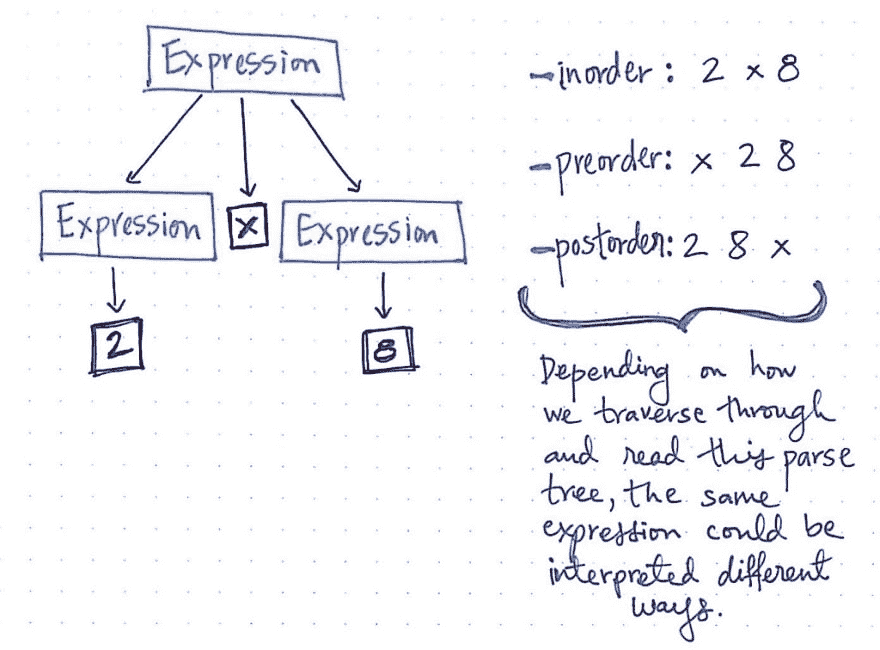 Expression
Expression
x
Expression
2
8
-inorder: 2 x 8
-preorder: x 2 8
-postorder: 2 8 x
Depending on how
we traverse through
and read this parse
tree, the same
expression could be
interpreted different
ways.